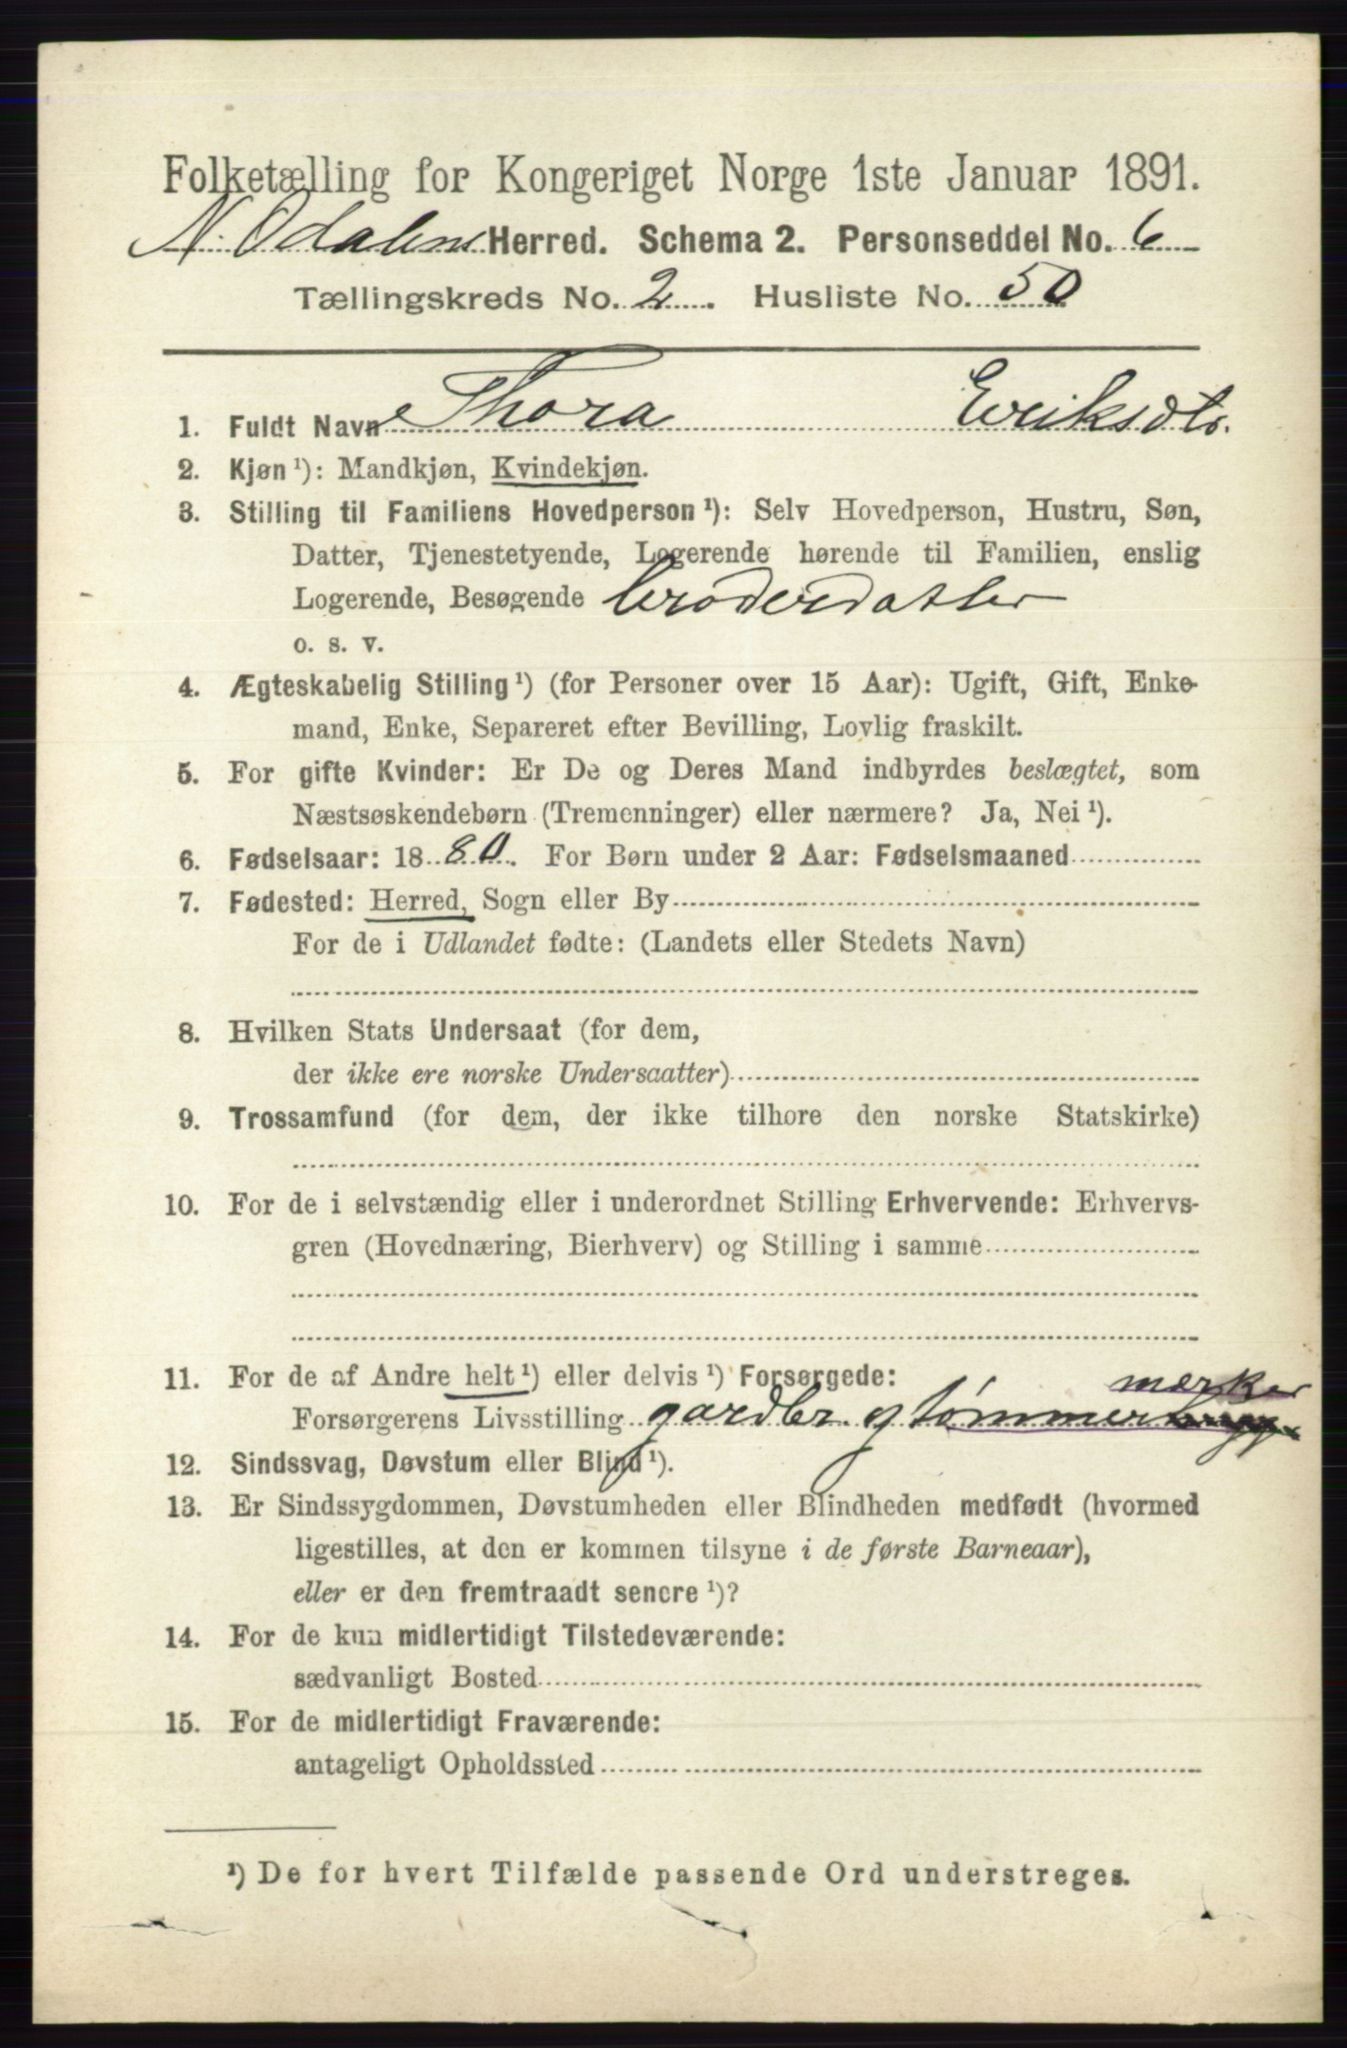 Folketælling for Kongeriget Norge 1ste Januar 1891.
N. Odalens Herred. Schema 2. Personseddel No. 6
Tællingskreds No. 2. Husliste No. 50
1. Fuldt Navn Thora Eriksdtr.
2. Kjøn ¹): Mandkjøn, Kvindekjøn.
3. Stilling til Familiens Hovedperson ¹): Selv Hovedperson, Hustru, Søn,
Datter, Tjenestetyende, Logerende hørende til Familien, enslig
Logerende, Besøgende broderdatter
o. s. v.
4. Ægteskabelig Stilling ¹) (for Personer over 15 Aar): Ugift, Gift, Enke-
mand, Enke, Separeret efter Bevilling, Lovlig fraskilt.
5. For gifte Kvinder: Er De og Deres Mand indbyrdes beslægtet, som
Næstsøskendebørn (Tremenninger) eller nærmere? Ja, Nei ¹).
6. Fødselsaar: 1880. For Børn under 2 Aar: Fødselsmaaned
7. Fødested: Herred, Sogn eller By
For de i Udlandet fødte: (Landets eller Stedets Navn)
8. Hvilken Stats Undersaat (for dem,
der ikke ere norske Undersaatter)
9. Trossamfund (for dem, der ikke tilhøre den norske Statskirke)
10. For de i selvstændig eller i underordnet Stilling Erhvervende: Erhvervs-
gren (Hovednæring, Bierhverv) og Stilling i samme
11. For de af Andre helt ¹) eller delvis ¹) Forsørgede:
merker
Forsørgerens Livsstilling gardbr. og tømmer
12. Sindssvag, Døvstum eller Blind ¹).
13. Er Sindssygdommen, Døvstumheden eller Blindheden medfødt (hvormed
ligestilles, at den er kommen tilsyne i de første Barneaar),
eller er den fremtraadt senere ¹)?
14. For de kun midlertidigt Tilstedeværende:
sædvanligt Bosted
15. For de midlertidigt Fraværende:
antageligt Opholdssted
¹) De for hvert Tilfælde passende Ord understreges.